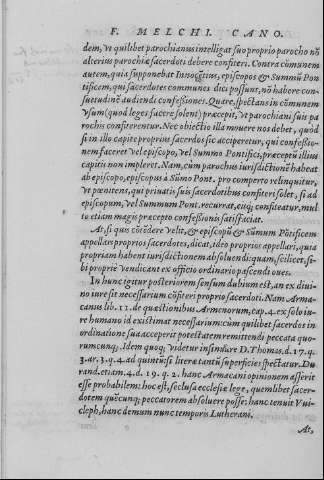 F. MELCHI. CANO.
dem, vt quilibet parochianus intelligat suo proprio parocho nō
alterius parochiæ sacerdoti debere confiteri. Contra cōmunem
autem, quia supponebat Innocētius, episcopos & Summū Pon
tificem, qui sacerdotes communes dici possunt, nō habere con-
suetudinē audiendi confessiones. Quare, spectans in cōmunem
vsum (quod leges facere solent) præcepit, vt parochiani suis pa
rochis confiterentur. Nec obiectio illa mouere nos debet, quòd
si in illo capite proprius sacerdos sic acciperetur, qui confessio-
nem faceret vel episcopo, vel Summo Pontifici, præceptū illius
capitis non impleret. Nam, cùm parochus iurisdictionē habeat
ab episcopo, episcopus à Sūmo Pont. pro comperto relinquitur,
vt pœnitens, qui priuatis suis sacerdotibus confiteri solet, si ad
episcopum, vel Summum Pont. recurrat, eiq́; confiteatur, mul
to etiam magis præcepto confessionis satisfaciat.
At, si quis cōtēdere velit, & episcopū & Summum Pōtificem
appellari proprios sacerdotes, dicat, ideo proprios appellari, quia
propriam habent iurisdictionem absoluendi: quam, scilicet, si-
bi propriè vendicant ex officio ordinario pascendi oues.
In hunc igitur posteriorem sensum dubium est, an ex diui-
no iure sit necessarium cōfiteri proprio sacerdoti. Nam Arma-
canus lib. 11. de quæstionibus Armenorum, cap. 4. ex solo iu-
re humano id existimat necessarium: cùm quilibet sacerdos in
ordinatione sua acceperit potestatem remittendi peccata quo-
rumcunq́;. Idem quoq́; videtur insinuare D. Thomas. d. 17. q.
3. ar. 3. q. 4. ad quintū si literæ tantū superficies spectatur. Du
rand. etiam. 4. d. 19. q. 2. hanc Armacani opinionem asserit
esse probabilem: hoc est, seclusa ecclesiæ lege, quemlibet sacer-
dotem quēcunq́; peccatorem absoluere posse: hanc tenuit Vui-
cleph, hanc demum nunc temporis Lutherani.
At,